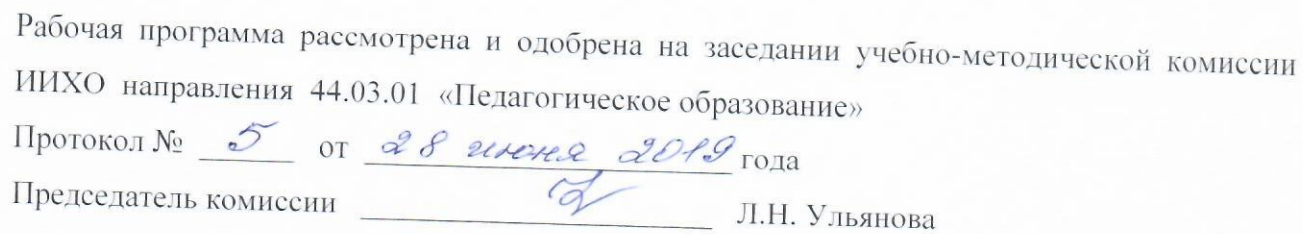 Рабочая программа рассмотрена и одобрена на заседании учебно-методической комиссии
ИИХО направления 44.03.01 «Педагогическое образование»
Протокол № 5 от 28 июня 2019 года
Председатель комиссии Л.Н. Ульянова